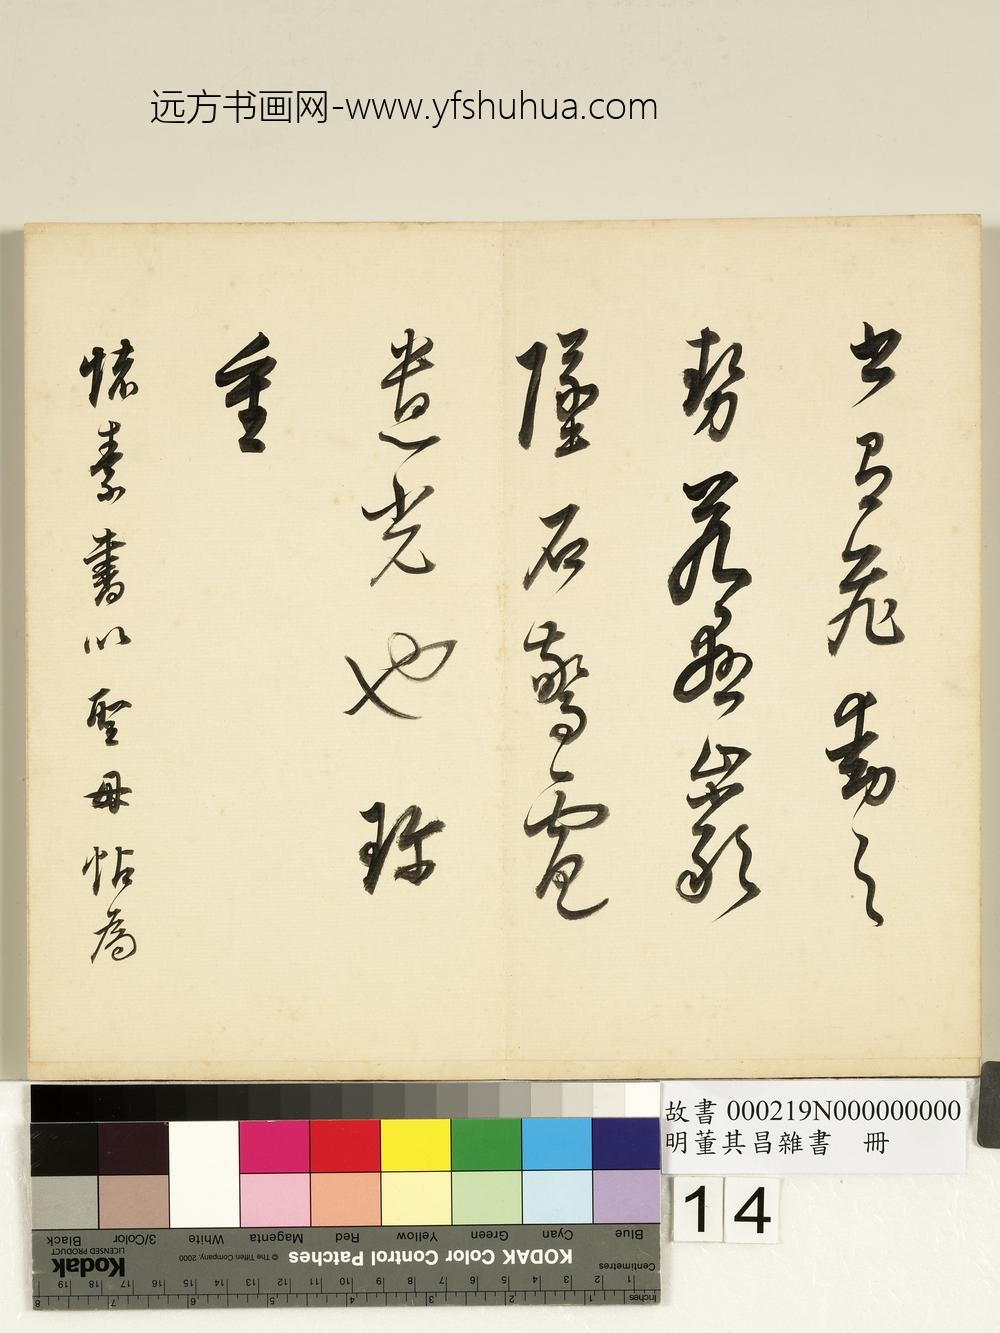 远方书画网-www.yfshuhua.com
有飛動之
勢若懸巖
墜石驚電
遺光也珍
重
懷素書以聖母帖為
故書 000219N000000000
明董其昌雜書 冊
14
Blue Cyan Green Yellow Red Magenta White 3/Color Black
KODAK Color Control Patches © The Tiffen Company, 2000 Kodak LICENSED PRODUCT
Centimetres 1 2 3 4 5 6 7 8 9 10 11 12 13 14 15 16 17 18 19
Inches 1 2 3 4 5 6 7 8